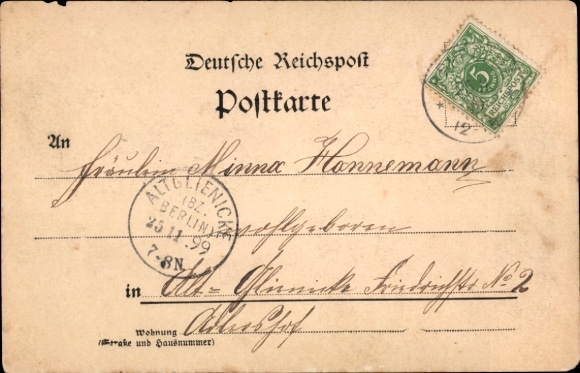 Deutsche Reichspost
Postkarte
5
REICHSPOST
An
Fräulein Minna Hannemann
ALTGLIENICKE
(BZ.
BERLIN)
25 11 99
7-8N
wohlgeboren
in Alt-Glienicke Friedrichstr No 2
Adlershof
Wohnung
(Straße und Hausnummer)